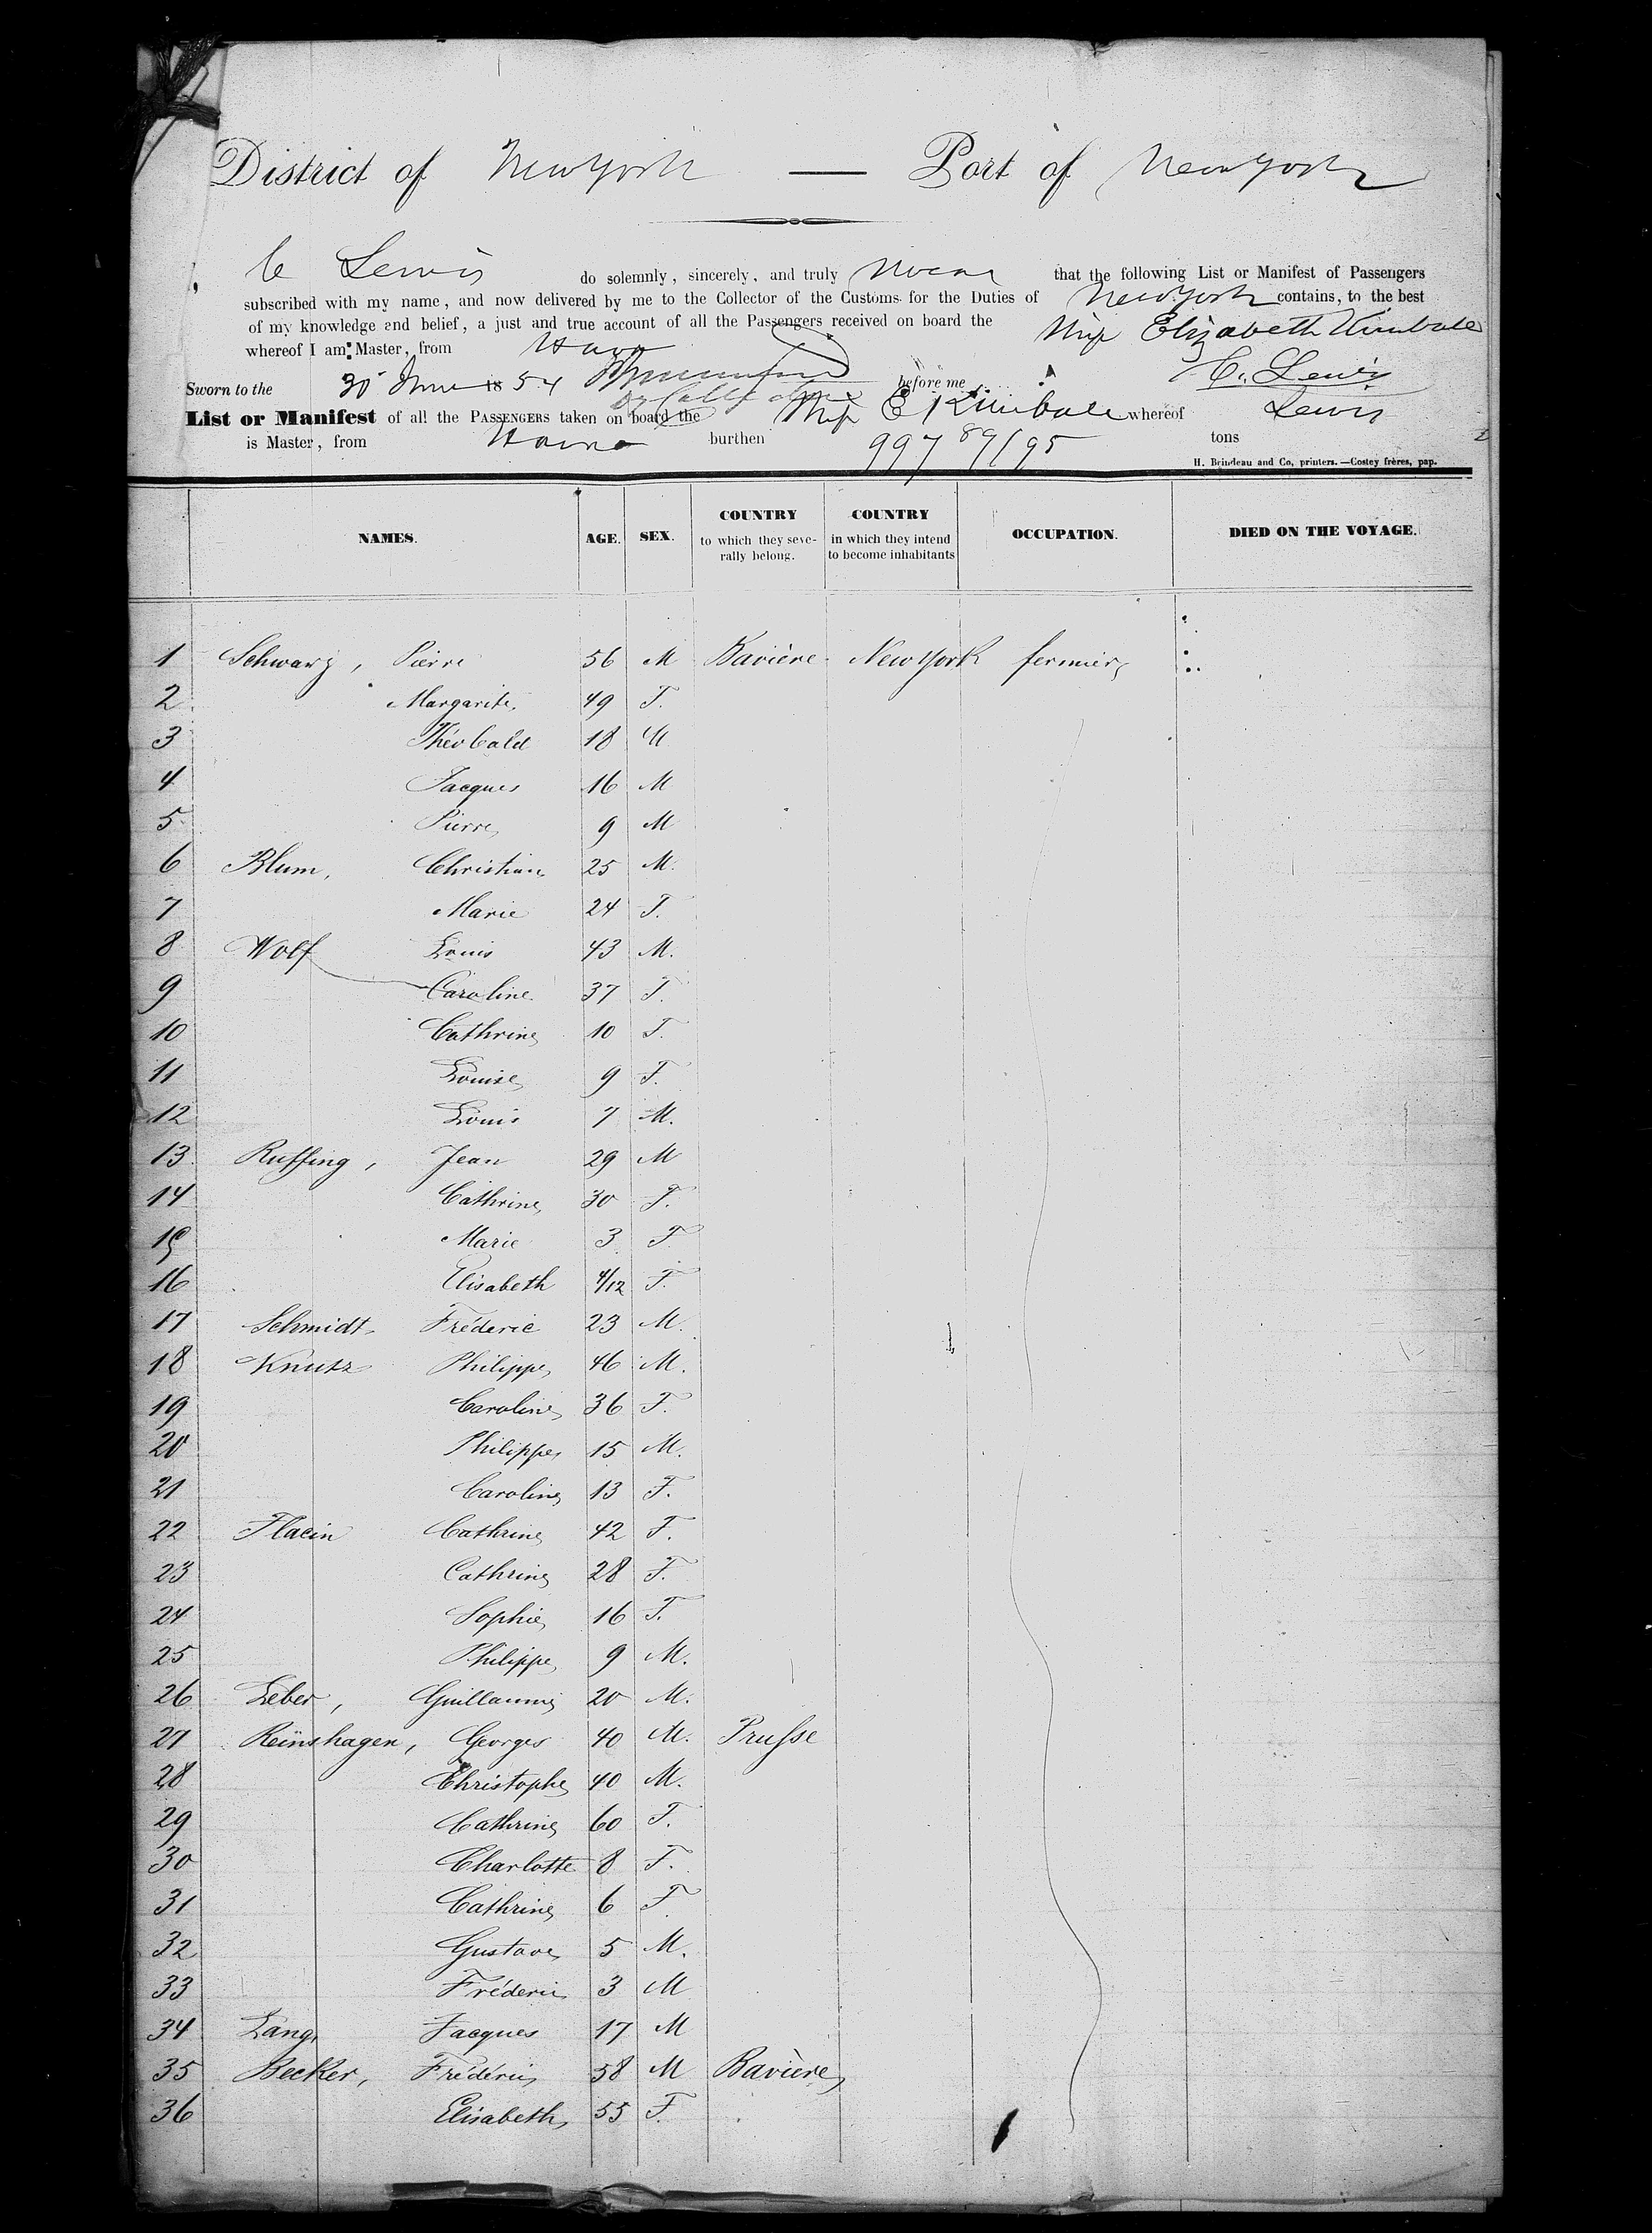 District of New York — Port of New York
C Lewis do solemnly, sincerely, and truly swear that the following List or Manifest of Passengers
subscribed with my name, and now delivered by me to the Collector of the Customs for the Duties of New York contains, to the best
of my knowledge and belief, a just and true account of all the Passengers received on board the Ship Elizabeth Kimball
whereof I am Master, from Havre
Sworn to the 30 June 1854 before me C. Lewis
List or Manifest of all the PASSENGERS taken on board the Ship E Kimball whereof Lewis
is Master, from Havre burthen 997 89/95 tons
H. Brindeau and Co, printers.—Costey frères, pap.
NAMES. AGE. SEX. COUNTRY to which they severally belong. COUNTRY in which they intend to become inhabitants OCCUPATION. DIED ON THE VOYAGE.
1 Schwarz, Pierre 56 M Bavière New York fermier
2 Margarite 49 F.
3 Théobald 18 M
4 Jacques 16 M
5 Pierre 9 M
6 Blum, Christian 25 M.
7 Marie 24 F.
8 Wolf Louis 43 M.
9 Caroline 37 F.
10 Cathrine 10 F.
11 Louise 9 F.
12 Louis 7 M.
13 Ruffing, Jean 29 M
14 Cathrine 30 F.
15 Marie 3 F.
16 Elisabeth 4/12 F.
17 Schmidt Fréderic 23 M.
18 Knutz Philippe 46 M.
19 Caroline 36 F.
20 Philippe 15 M.
21 Caroline 13 F.
22 Flacin Cathrine 42 F.
23 Cathrine 28 F.
24 Sophie 16 F.
25 Philippe 9 M.
26 Leber, Guillaume 20 M.
27 Reinshagen, Georges 40 M. Prusse
28 Christophe 40 M.
29 Cathrine 60 F.
30 Charlotte 8 F.
31 Cathrine 6 F
32 Gustave 5 M.
33 Fréderic 3 M
34 Lang, Jacques 17 M
35 Becker, Fréderic 58 M Bavière
36 Elisabeth 55 F.